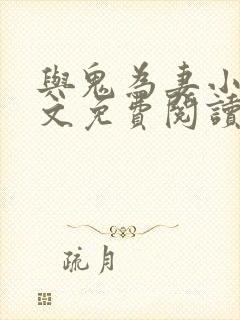 與鬼為妻小
文免費閱讀
疏月